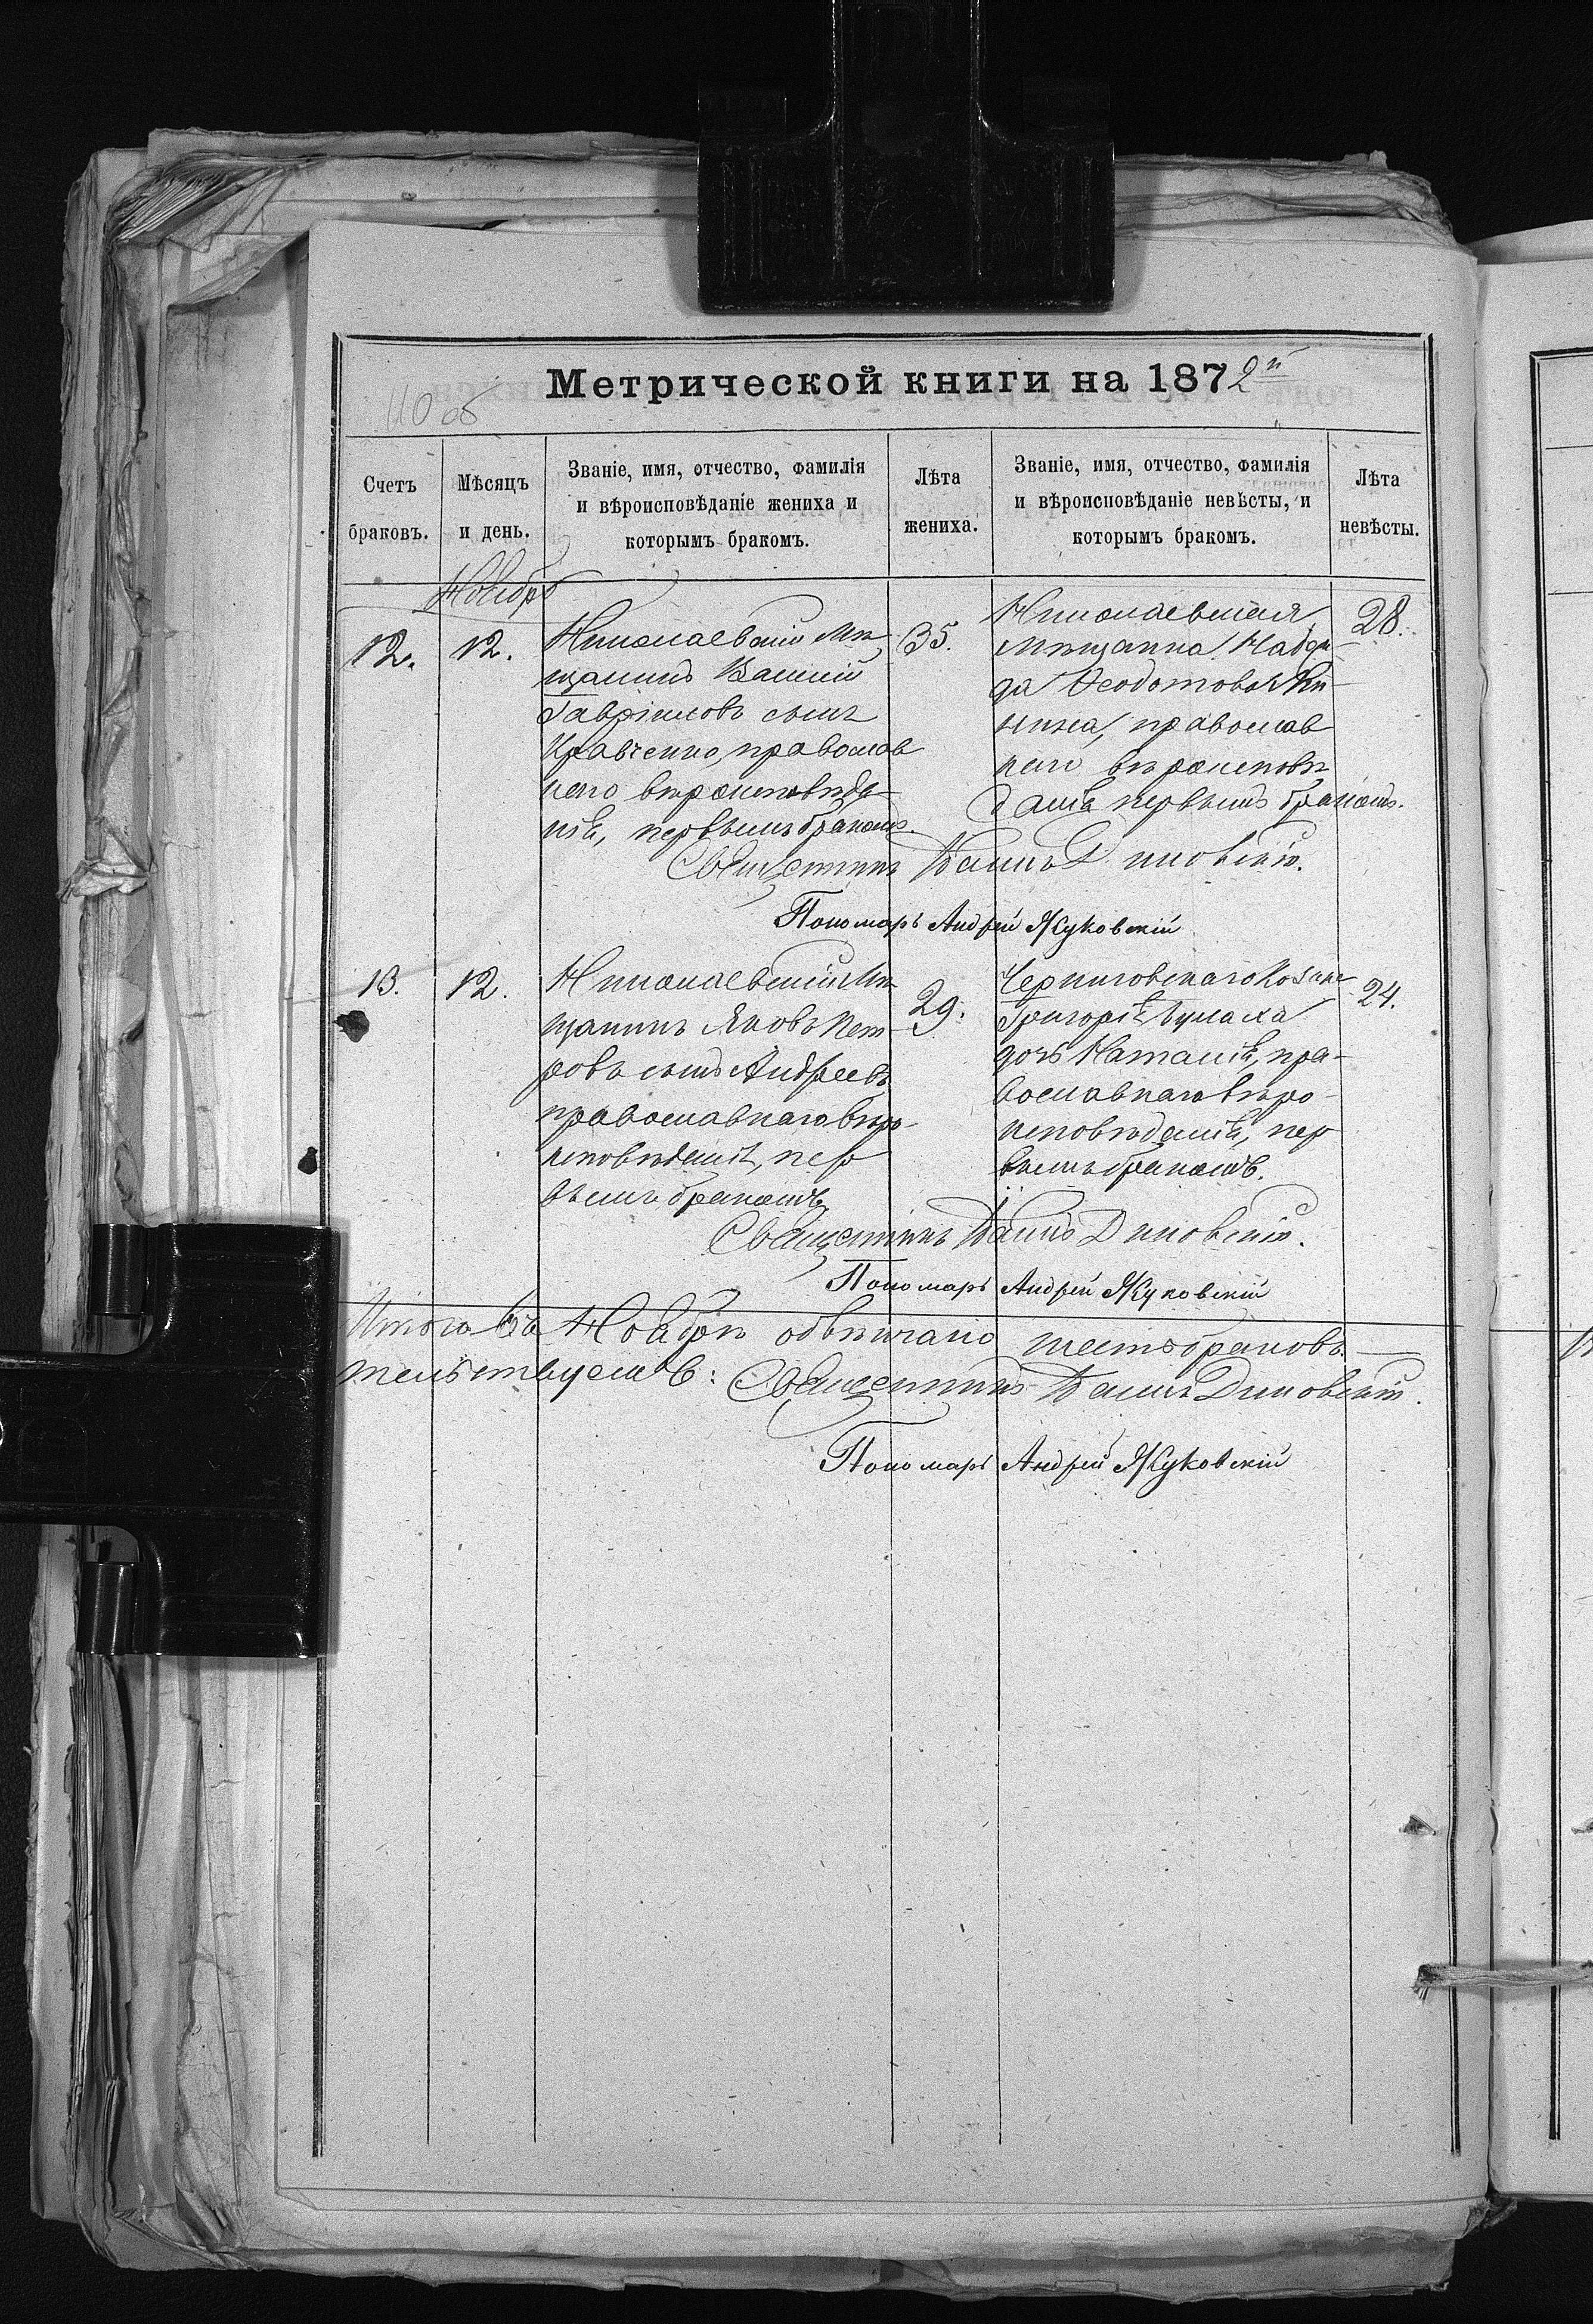 Метрической книги на 1872й
110 об
Счетъ браковъ.
Мѣсяцъ и день.
Званіе, имя, отчество, фамилія
и вѣроисповѣданіе жениха и
которымъ бракомъ.
Лѣта жениха.
Званіе, имя, отчество, фамилія
и вѣроисповѣданіе невѣсты, и
которымъ бракомъ.
Лѣта невѣсты.
Ноябрь
12.
12.
Николаевскій мѣ
щанинъ
Гавріиловъ сынъ
Кравченко, православ
наго вѣроисповѣда
нія, первымъ бракомъ.
35.
Николаевская
мѣщанка Надеж
да Ѳеодотова
православ
наго вѣроисповѣ
данія первымъ бракомъ.
28.
Священникъ
Пономарь Андрей Жуковскій
13.
12.
Николаевскій мѣ
щанинъ Яковъ Пет
ровъ сынъ Андреевъ
православнаго вѣро-
исповѣданія, пер
вымъ бракомъ
29.
Черниговскаго козака
Григорія
дочь Наталія, пра-
вославнаго вѣро-
исповѣданія, пер
вымъ бракомъ.
24.
Священникъ
Пономарь Андрей Жуковскій
Итого въ Ноябрѣ обвѣнчано шесть браковъ.
Священникъ
Пономарь Андрей Жуковскій